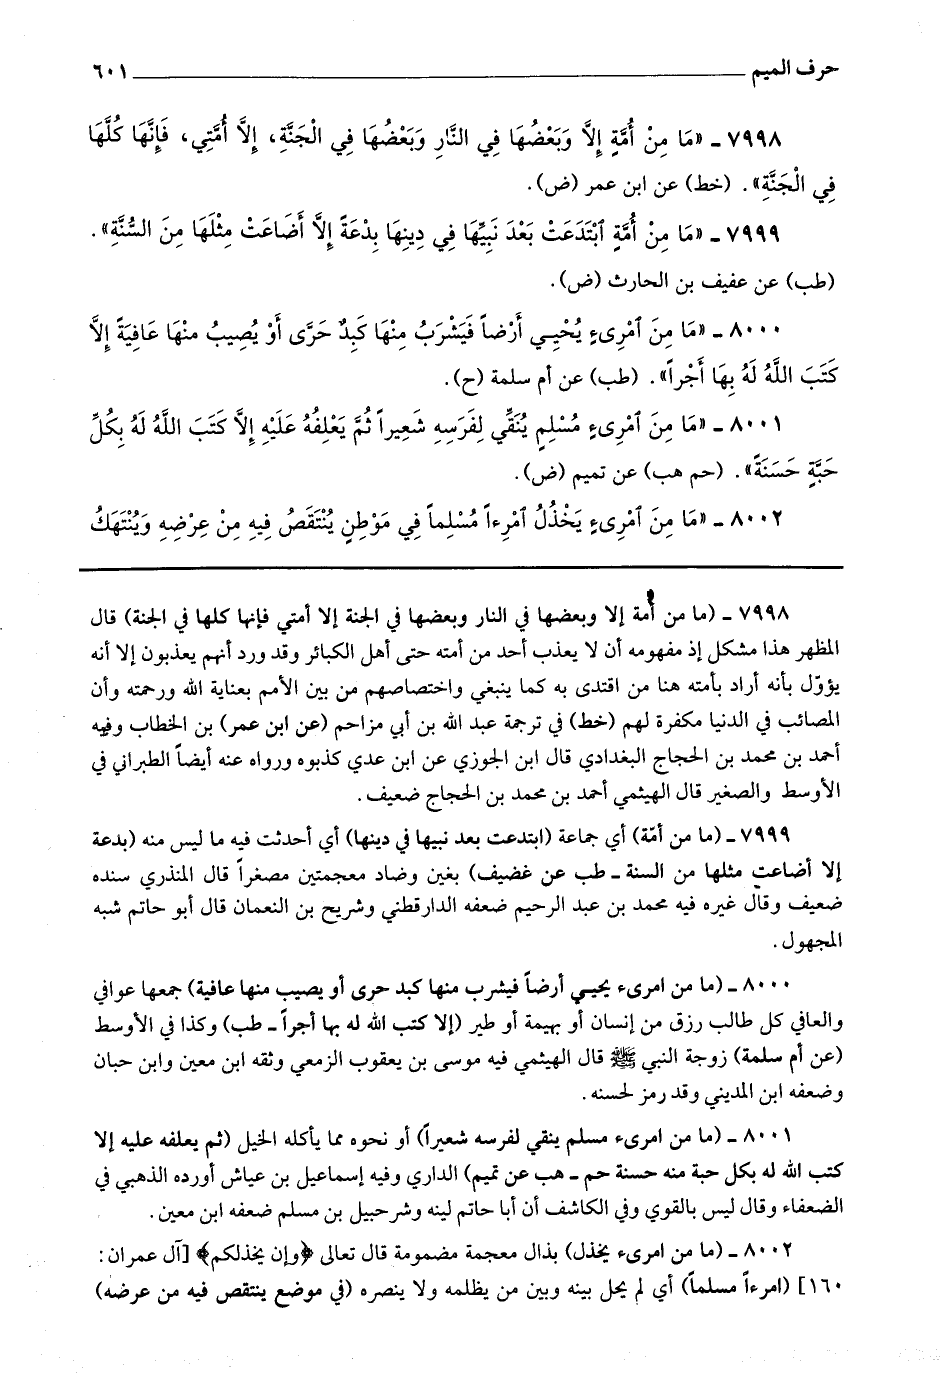 حرف الميم ٦٠١
٧٩٩٨ ـ «مَا مِنْ أُمَّةٍ إِلَّا وَبَعْضُهَا فِي النَّارِ وَبَعْضُهَا فِي الْجَنَّةِ، إِلَّا أُمَّتِي، فَإِنَّهَا كُلَّهَا
فِي الْجَنَّةِ». (خط) عن ابن عمر (ض).
٧٩٩٩ ـ «مَا مِنْ أُمَّةٍ ٱبْتَدَعَتْ بَعْدَ نَبِيِّهَا فِي دِينِهَا بِدْعَةً إِلَّا أَضَاعَتْ مِثْلَهَا مِنَ السُّنَّةِ».
(طب) عن عفيف بن الحارث (ض).
٨٠٠٠ ـ «مَا مِنَ ٱمْرِىءٍ يُحْيِـي أَرْضاً فَيَشْرَبُ مِنْهَا كَبِدٌ حَرَّى أَوْ يُصِيبُ مِنْهَا عَافِيَةً إِلَّا
كَتَبَ اللَّهُ لَهُ بِهَا أَجْراً». (طب) عن أم سلمة (ح).
٨٠٠١ ـ «مَا مِنَ ٱمْرِىءٍ مُسْلِمٍ يُنَقِّي لِفَرَسِهِ شَعِيراً ثُمَّ يَعْلِفُهُ عَلَيْهِ إِلَّا كَتَبَ اللَّهُ لَهُ بِكُلِّ
حَبَّةٍ حَسَنَةً». (حم هب) عن تميم (ض).
٨٠٠٢ ـ «مَا مِنَ ٱمْرِىءٍ يَخْذُلُ ٱمْرِءاً مُسْلِماً فِي مَوْطِنٍ يُنْتَقَصُ فِيهِ مِنْ عِرْضِهِ وَيُنْتَهَكُ
٧٩٩٨ ـ (ما من أمة إلا وبعضها في النار وبعضها في الجنة إلا أمتي فإنها كلها في الجنة) قال
المظهر هذا مشكل إذ مفهومه أن لا يعذب أحد من أمته حتى أهل الكبائر وقد ورد أنهم يعذبون إلا أنه
يؤوّل بأنه أراد بأمته هنا من اقتدى به كما ينبغي واختصاصهم من بين الأمم بعناية الله ورحمته وأن
المصائب في الدنيا مكفرة لهم (خط) في ترجمة عبد الله بن أبي مزاحم (عن ابن عمر) بن الخطاب وفيه
أحمد بن محمد بن الحجاج البغدادي قال ابن الجوزي عن ابن عدي كذبوه ورواه عنه أيضاً الطبراني في
الأوسط والصغير قال الهيثمي أحمد بن محمد بن الحجاج ضعيف.
٧٩٩٩ ـ (ما من أمّة) أي جماعة (ابتدعت بعد نبيها في دينها) أي أحدثت فيه ما ليس منه (بدعة
إلا أضاعت مثلها من السنة ـ طب عن غضيف) بغين وضاد معجمتين مصغراً قال المنذري سنده
ضعيف وقال غيره فيه محمد بن عبد الرحيم ضعفه الدارقطني وشريح بن النعمان قال أبو حاتم شبه
المجهول.
٨٠٠٠ ـ (ما من امرىء يحيـي أرضاً فيشرب منها كبد حرى أو يصيب منها عافية) جمعها عوافي
والعافي كل طالب رزق من إنسان أو بهيمة أو طير (إلا كتب الله له بها أجراً ـ طب) وكذا في الأوسط
(عن أم سلمة) زوجة النبي ﷺ قال الهيثمي فيه موسى بن يعقوب الزمعي وثقه ابن معين وابن حبان
وضعفه ابن المديني وقد رمز لحسنه.
٨٠٠١ ـ (ما من امرىء مسلم ينقي لفرسه شعيراً) أو نحوه مما يأكله الخيل (ثم يعلفه عليه إلا
كتب الله له بكل حبة منه حسنة حم ـ هب عن تميم) الداري وفيه إسماعيل بن عياش أورده الذهبي في
الضعفاء وقال ليس بالقوي وفي الكاشف أن أبا حاتم لينه وشرحبيل بن مسلم ضعفه ابن معين.
٨٠٠٢ ـ (ما من امرىء يخذل) بذال معجمة مضمومة قال تعالى ﴿وإن يخذلكم﴾ [آل عمران:
١٦٠] (امرءاً مسلماً) أي لم يحل بينه وبين من يظلمه ولا ينصره (في موضع ينتقص فيه من عرضه)